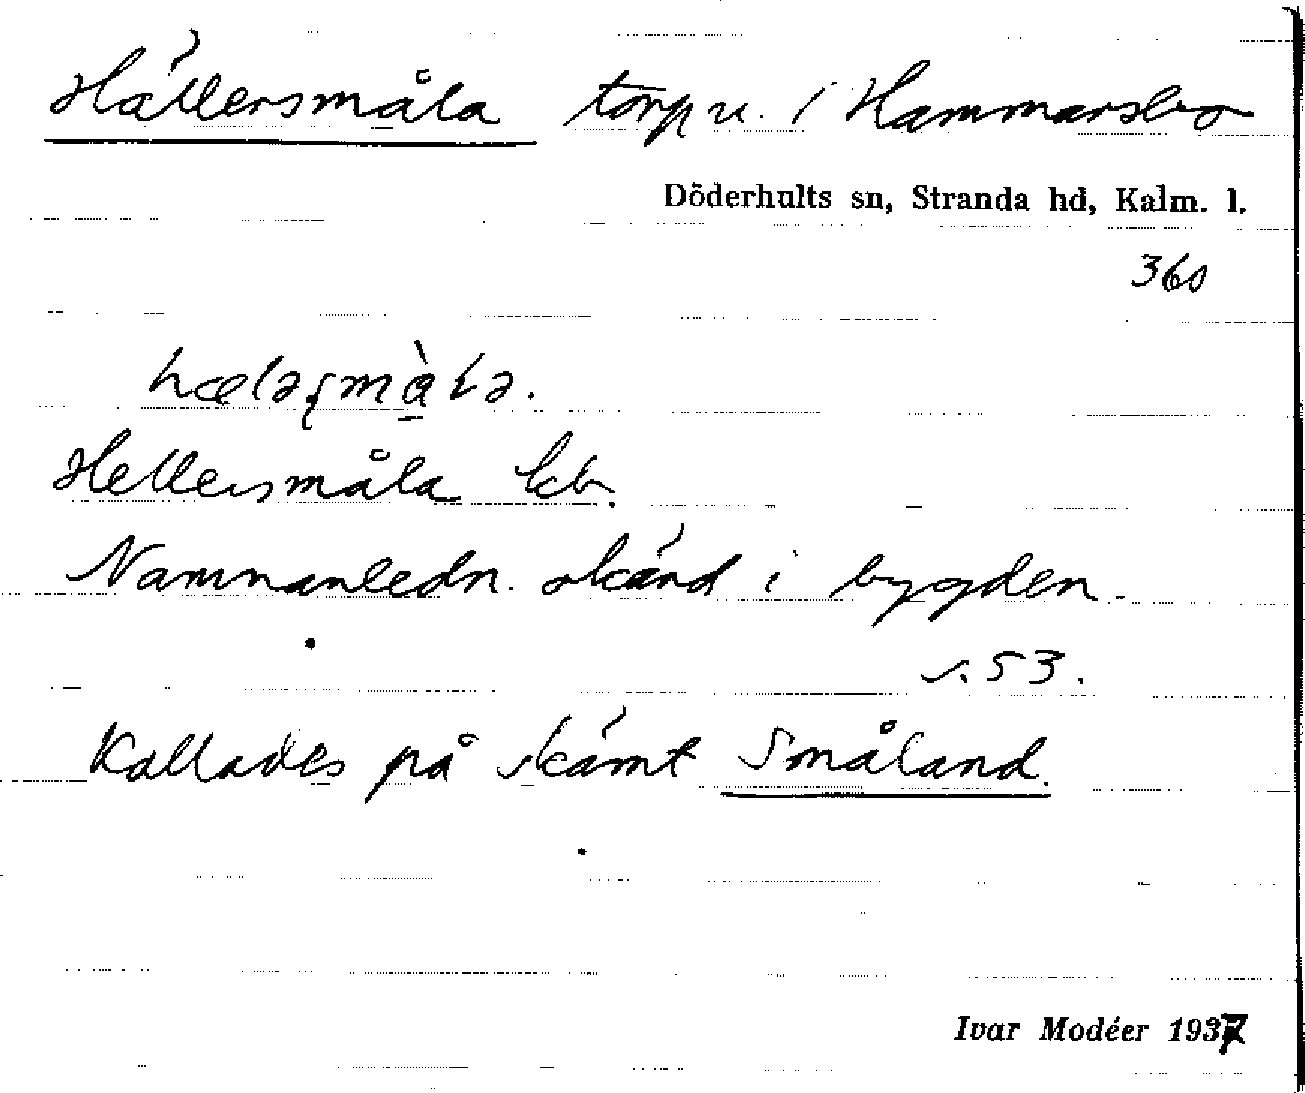 Hällersmåla torp u. i Hammarsbo
Döderhults sn, Stranda hd, Kalm. l.
360
Hellersmåla kb.
Namnanledn. okänd i bygden.
s. 53.
Kallades på skämt Småland.
Ivar Modéer 1937